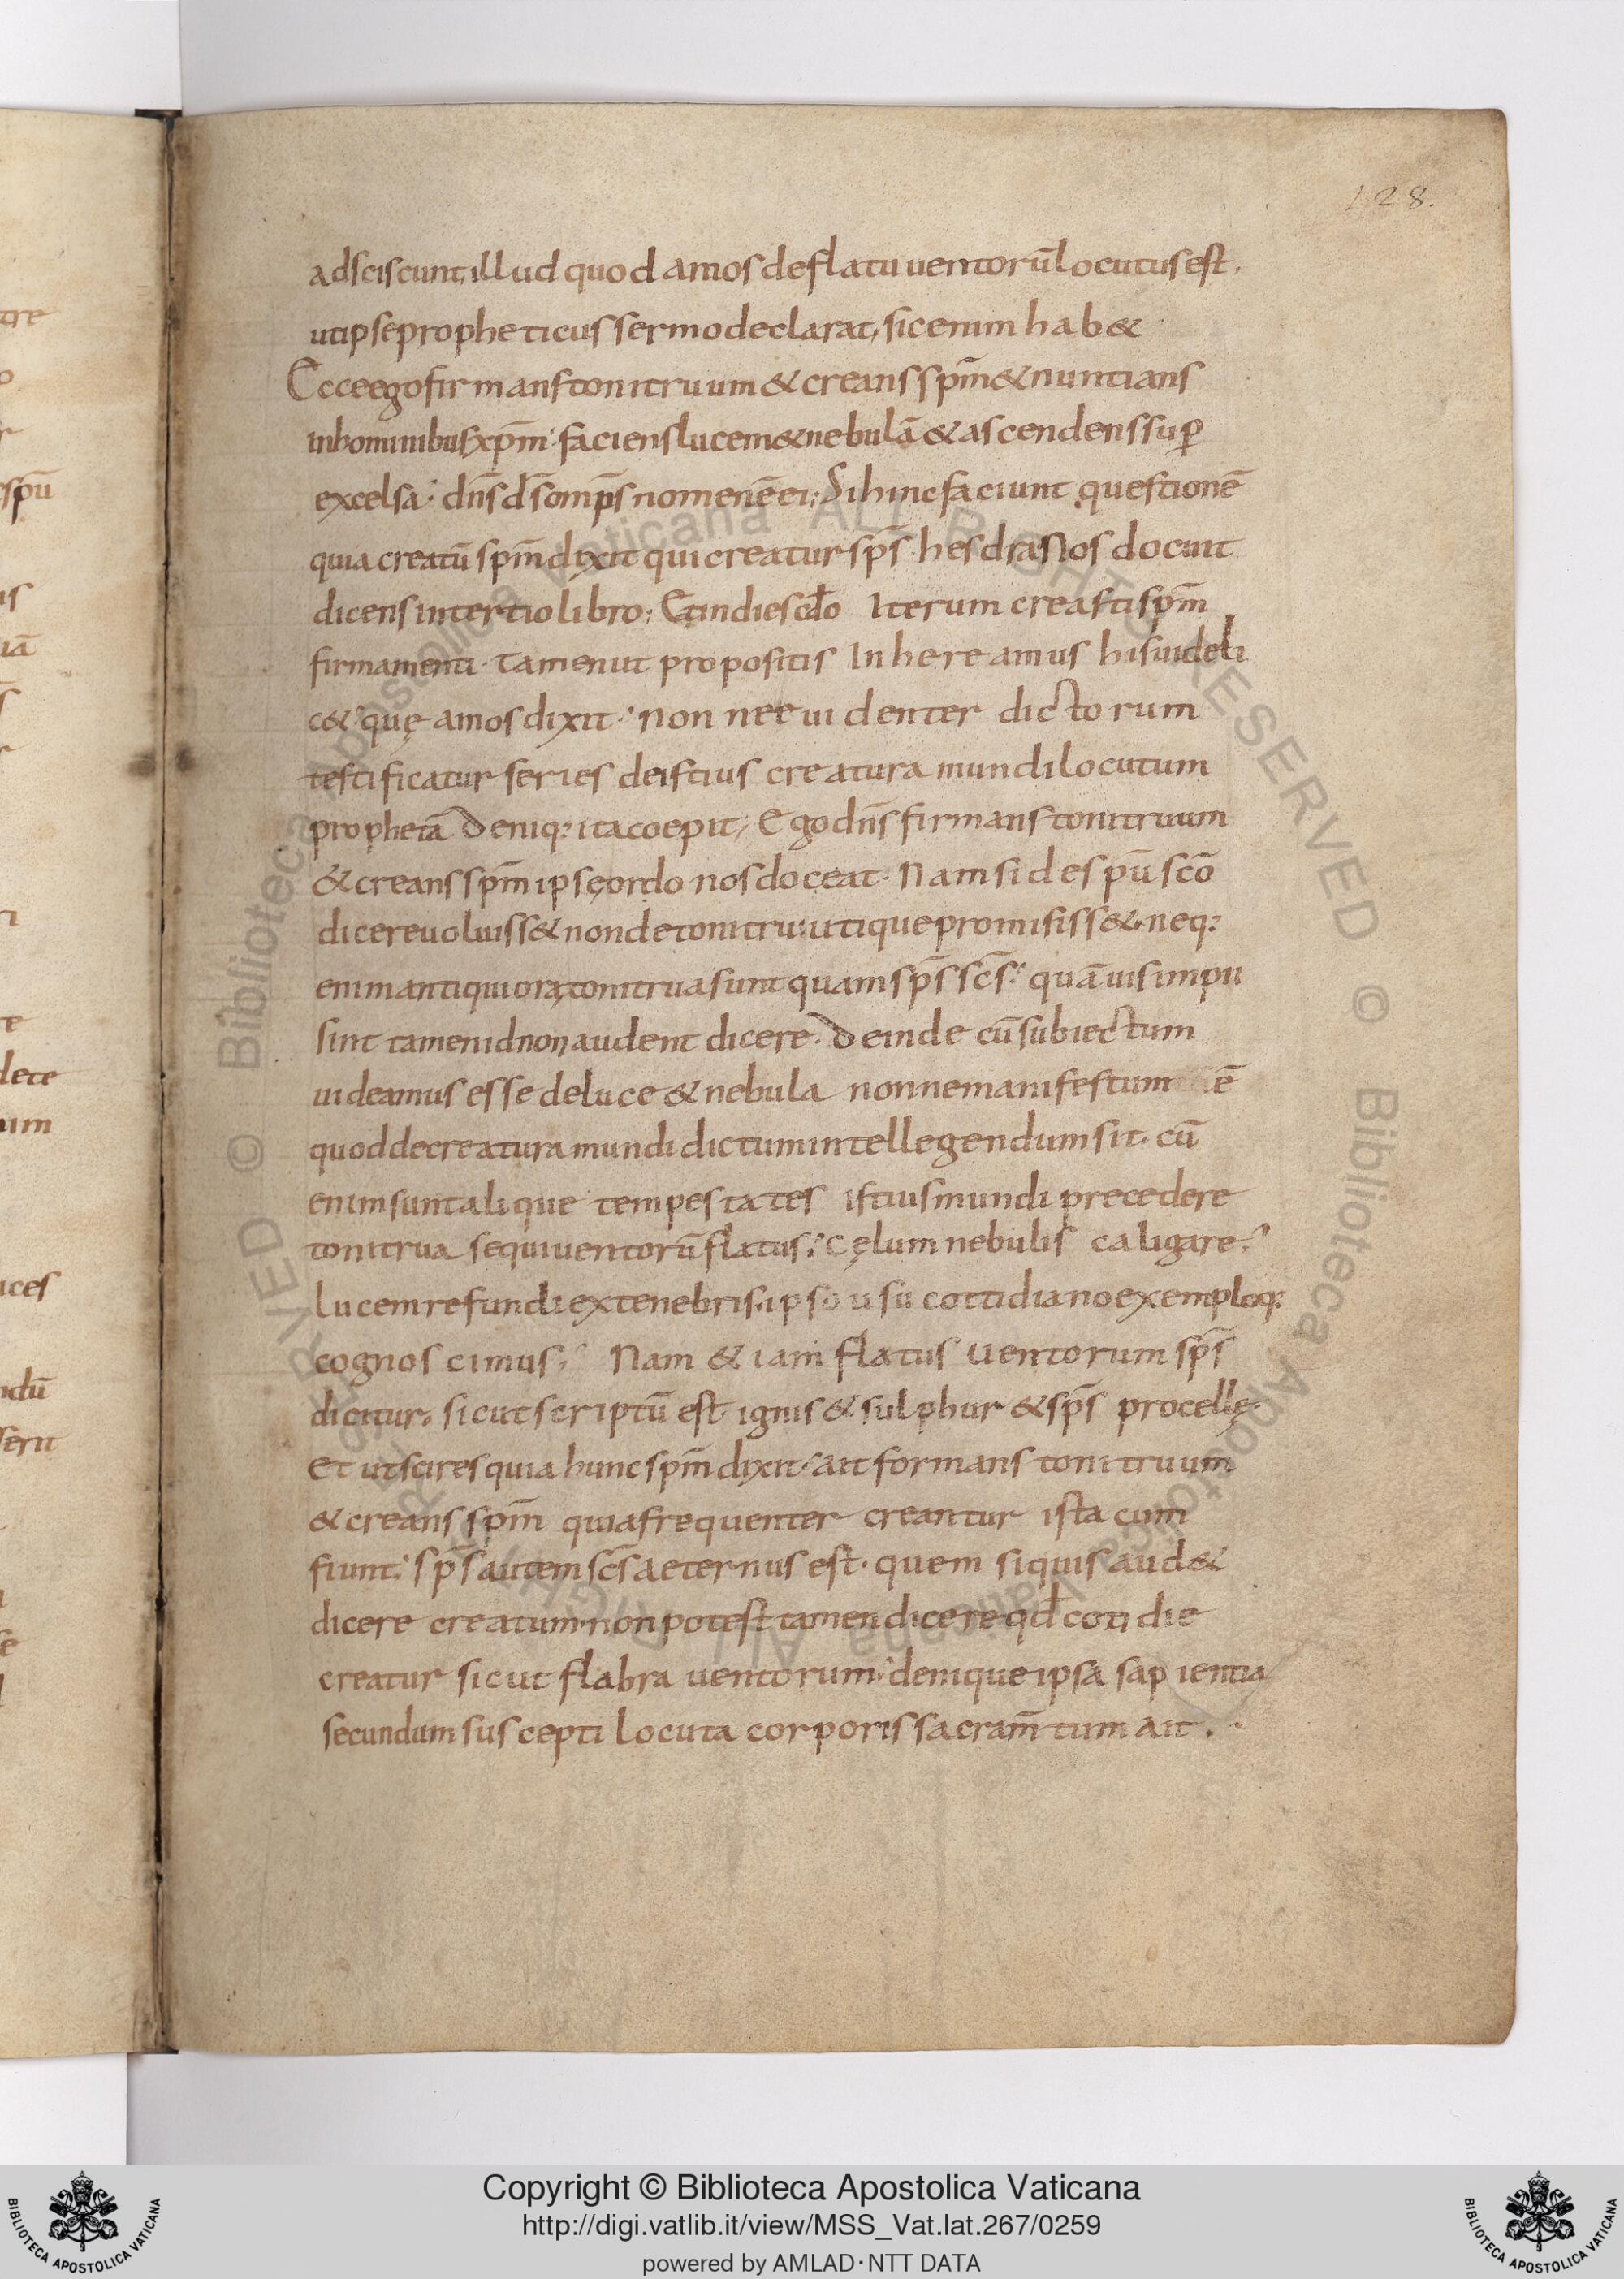 128.
adsciscunt, illud quod amos de flatu uentorū locutus est,
ut ipse propheticus sermo declarat, sic enim hab&
Ecce ego firmans tonitruum & creans spm̄ & nuntians
in hominibus xpm̄· faciens lucem & nebulā & ascendens sup̄
excelsa· dn̄s ds̄ omps̄ nomen ē ei; Si hinc faciunt questionē
quia creatū spm̄ dixit qui creatur sps̄ hesdras nos docuit
dicens in tertio libro; Et in die scdo Iterum creasti spm̄
firmamenti· Tamen ut propositis Inhereamus his uideli
c&· quę amos dixit· non nee uidenter dictorum
testificatur series de istius creatura mundi locutum
prophetā Deniq: ita coepit; Ego dn̄s firmans tonitruum
& creans spm̄ ipse ordo nos doceat· Nam si de spū scō
dicere uoluiss& non de tonitru· utique promisiss&· neq:
enim antiquiora tonitrua sunt quam sps̄ scs̄· quāuis impii
sint tamen id non audent dicere· Deinde cū subiectum
uideamus esse de luce & nebula nonne manifestum ē
quod de creatura mundi dictum intellegendum sit· cū
enim sunt alique tempestates istius mundi precedere
tonitrua sequi uentorū flatus; Cęlum nebulis caligare·
lucem refundi ex tenebris· ipso usu cottidiano exemploq:
cognoscimus; Nam & iam flatus uentorum sps̄
dicitur, sicut scriptū est· ignis & sulphur & sps̄ procellę
Et ut scires quia hunc spm̄ dixit· ait formans tonitruum
& creans spm̄ quia frequenter creantur ista cum
fiunt; sps̄ autem scs̄ aeternus est· quem siquis aud&
dicere creatum· non potest tamen dicere qd̄ cotidie
creatur sicut flabra uentorum· denique ipsa sapientia
secundum suscepti locuta corporis sacram̄tum ait·
Copyright © Biblioteca Apostolica Vaticana
http://digi.vatlib.it/view/MSS_Vat.lat.267/0259
powered by AMLAD·NTT DATA
BIBLIOTECA APOSTOLICA VATICANA
BIBLIOTECA APOSTOLICA VATICANA